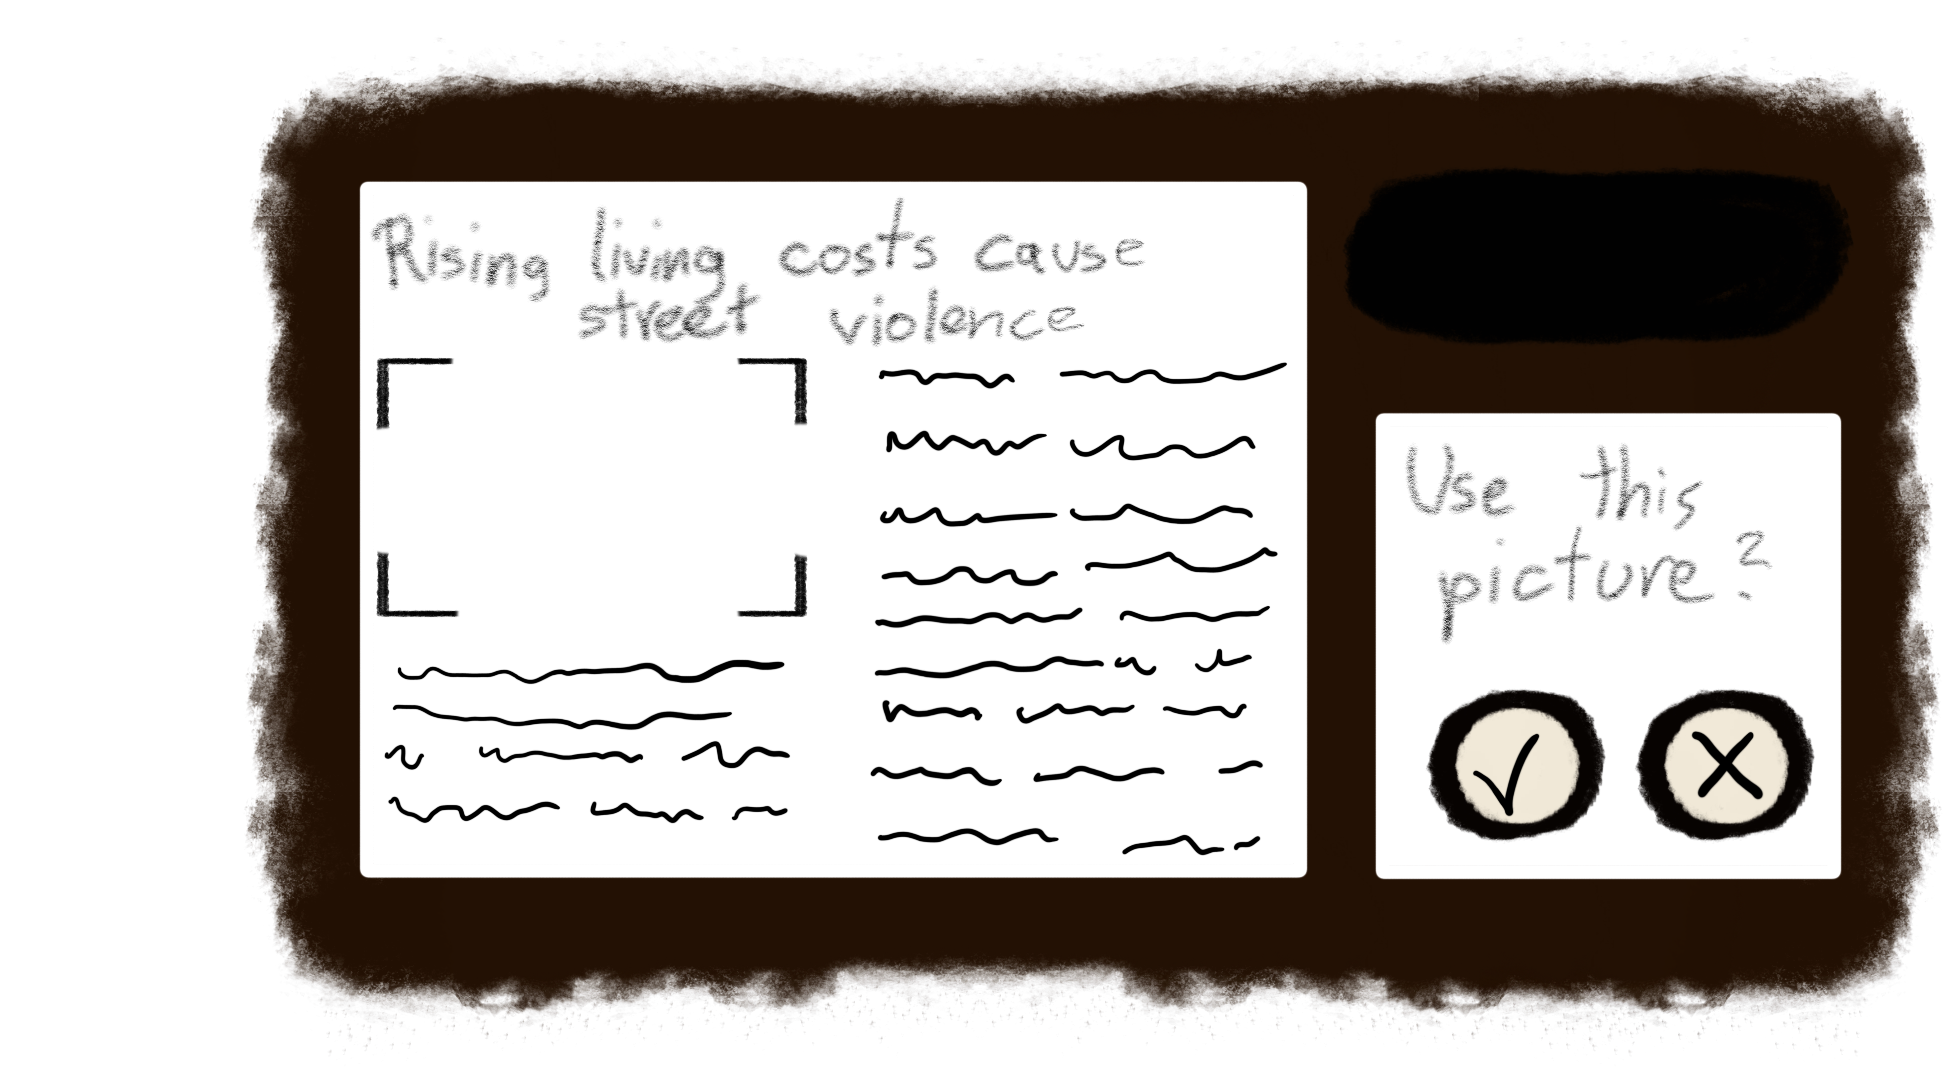 Rising living costs cause
street violence
Use this
picture?